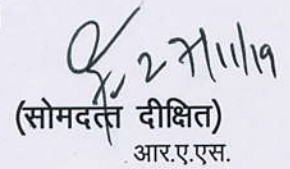 27/11/19
(सोमदत्त दीक्षित)
आर.ए.एस.